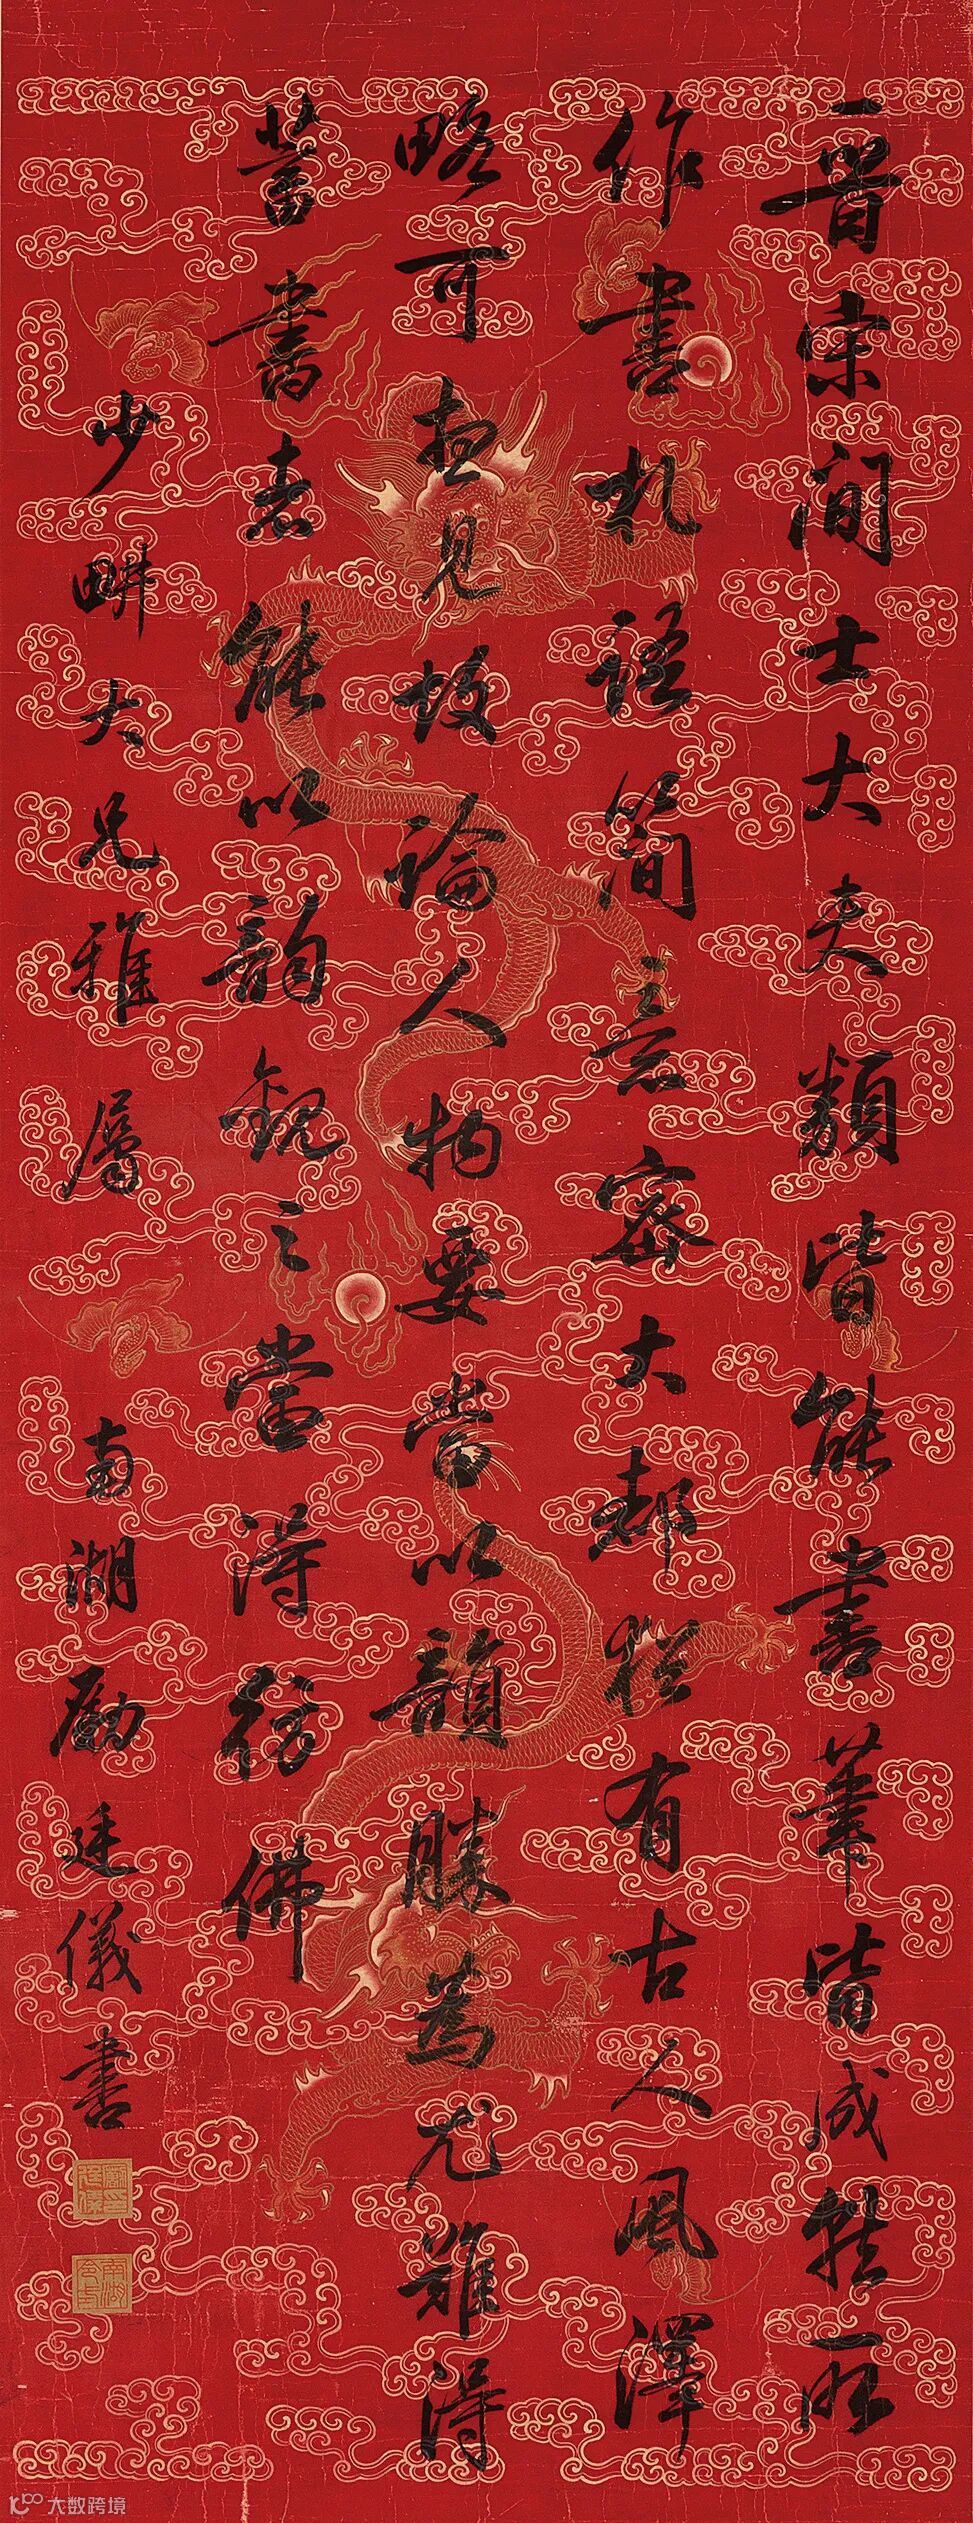 晉宋間士大夫類皆能書筆皆成就所
作書札語簡意密大都極有古人風澤
略可想見故論人物要當以韻勝為尤難得
蓄書者能以韻觀之當得彷佛
少畊大兄雅屬 南湖勵廷儀書
大数跨境